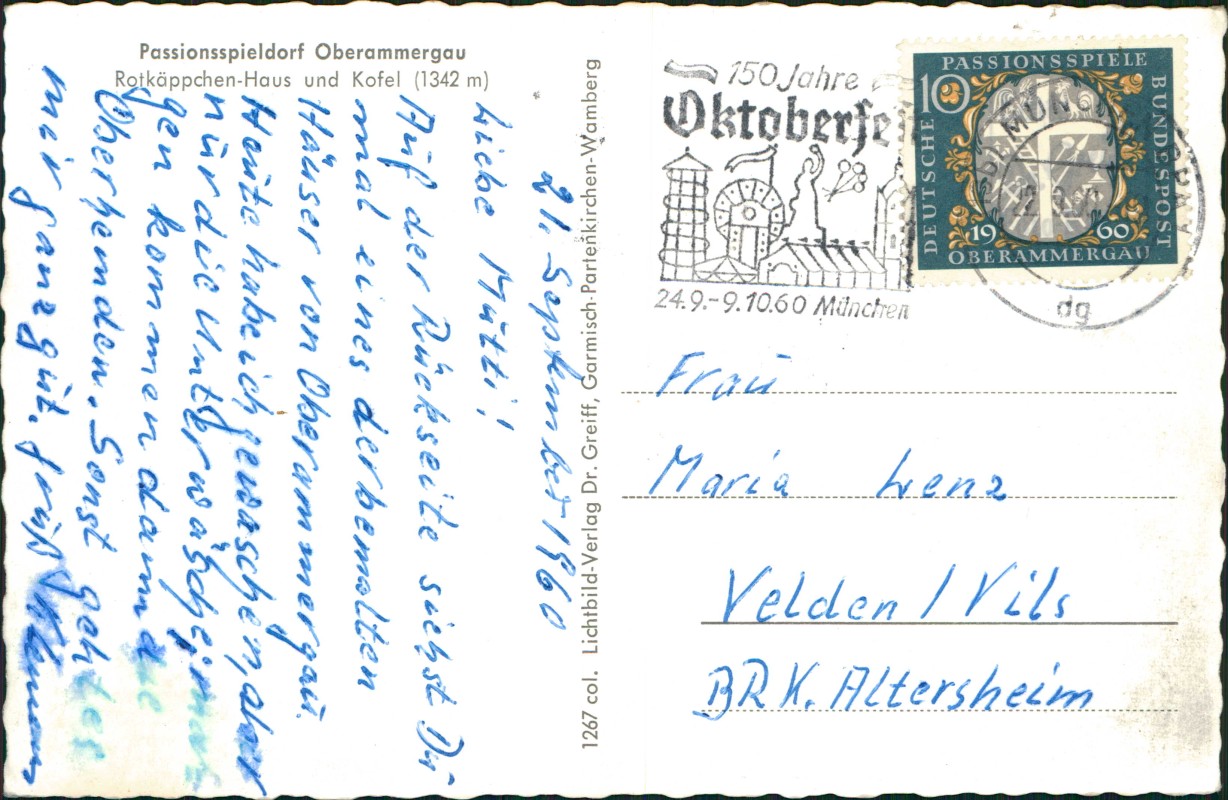 Passionsspieldorf Oberammergau
Rotkäppchen-Haus und Kofel (1342 m)
21. September 1960
Liebe Mutti!
Auf der Rückseite siehst Du
mal eines der bemalten
Häuser von Oberammergau.
Heute habe ich gewaschen, aber
nur die Unterwäsche, mor
gen kommen dann die
Oberhemden. Sonst geht es
mir ganz gut. Gruß
1267 col. Lichtbild-Verlag Dr. Greiff, Garmisch-Partenkirchen-Wamberg
150 Jahre
Oktoberfe
24.9.-9.10.60 München
PASSIONSSPIELE
10
DEUTSCHE
BUNDESPOST
1960
OBERAMMERGAU
MÜN
dg
Frau
Maria Lenz
Velden / Vils
BRK. Altersheim